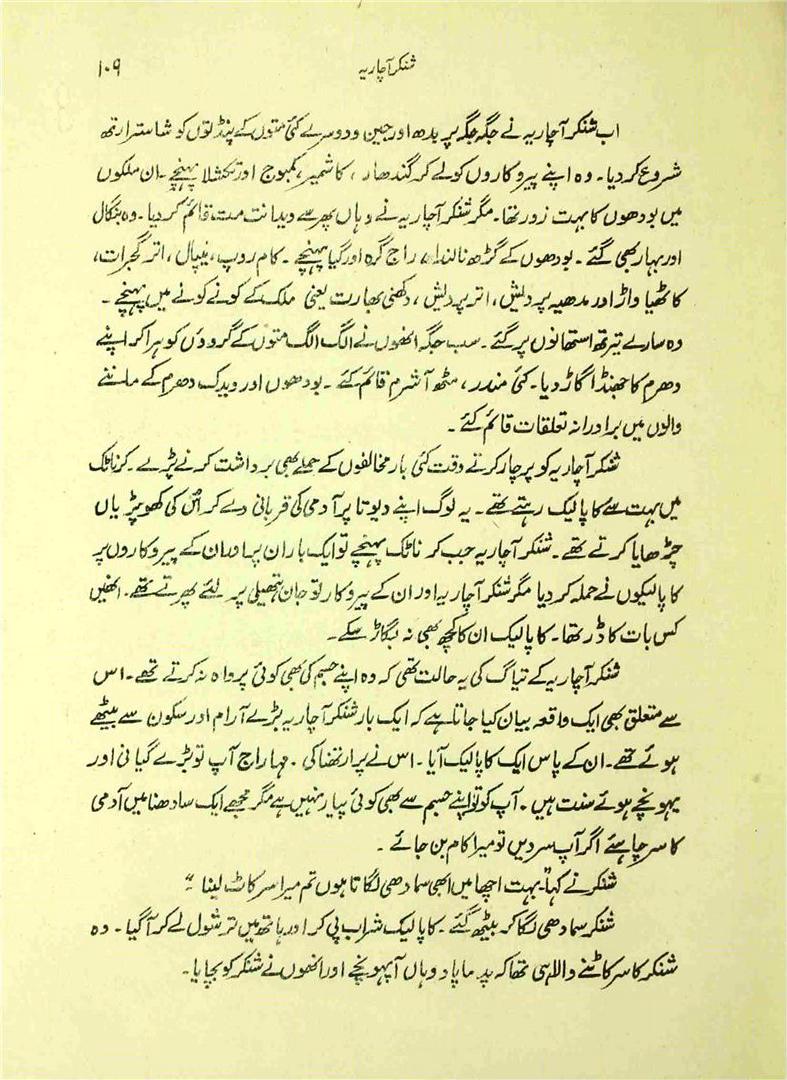 ۱۰۹
شنکر آچاریہ
اب شنکر آچاریہ نے جگہ جگہ پر بدھ اور جین و دوسرے کئی متوں کے پنڈتوں کو شاسترارتھ
شروع کر دیا۔ وہ اپنے پیروکاروں کو لے کر گندھار، کاشمیر، کمبوج اور تکشلا پہنچے۔ ان ملکوں
میں بودھوں کا بہت زور تھا۔ مگر شنکر آچاریہ نے وہاں پھر سے ویدانت مت قائم کر دیا۔ وہ بنگال
اور بہار بھی گئے۔ بودھوں کے گڑھ نالندا، راج گرہ اور گیا پہنچے۔ کام روپ، نیپال، اتر گجرات،
کاٹھیا واڑ اور مدھیہ پردیش، اتر پردیش، دکھنی بھارت یعنی ملک کے کونے کونے میں پہنچے۔
وہ سارے تیرتھ استھانوں پر گئے۔ سب جگہ انھوں نے الگ الگ متوں کے گروؤں کو ہرا کر اپنے
دھرم کا جھنڈا گاڑ دیا۔ کئی مندر، مٹھ آشرم قائم کئے۔ بودھوں اور ویدک دھرم کے ماننے
والوں میں برادرانہ تعلقات قائم کئے۔
شنکر آچاریہ کو پرچار کرتے وقت کئی بار مخالفوں کے حملے بھی برداشت کرنے پڑے۔ کرناٹک
میں بہت سے کاپالیک رہتے تھے۔ یہ لوگ اپنے دیوتا پر آدمی کی قربانی دے کر اس کی کھوپڑیاں
چڑھایا کرتے تھے۔ شنکر آچاریہ جب کرناٹک پہنچے تو ایک بار ان پر اور ان کے پیروکاروں پر
کاپالیکوں نے حملہ کر دیا مگر شنکر آچاریہ اور ان کے پیروکار تو جان ہتھیلی پر لئے پھرتے تھے۔ انھیں
کس بات کا ڈر تھا۔ کاپالیک ان کا کچھ بھی نہ بگاڑ سکے۔
شنکر آچاریہ کے تیاگ کی یہ حالت تھی کہ وہ اپنے جسم کی بھی کوئی پرواہ نہ کرتے تھے۔ اس
سے متعلق بھی ایک واقعہ بیان کیا جاتا ہے کہ ایک بار شنکر آچاریہ بڑے آرام اور سکون سے بیٹھے
ہوئے تھے۔ ان کے پاس ایک کاپالیک آیا۔ اس نے پرارتھنا کی۔ مہاراج آپ تو بڑے گیانی اور
پہونچے ہوئے سنت ہیں۔ آپ کو تو اپنے جسم سے بھی کوئی پیار نہیں ہے مگر مجھے ایک سادھنا میں آدمی
کا سر چاہئے اگر آپ سر دیں تو میرا کام بن جائے۔
شنکر نے کہا "بہت اچھا میں ابھی سمادھی لگاتا ہوں تم میرا سر کاٹ لینا۔"
شنکر سمادھی لگا کر بیٹھ گئے۔ کاپالیک شراب پی کر اور ہاتھ میں ترشول لے کر آ گیا۔ وہ
شنکر کا سر کاٹنے والا ہی تھا کہ پدماپاد وہاں آ پہونچے اور انھوں نے شنکر کو بچایا۔